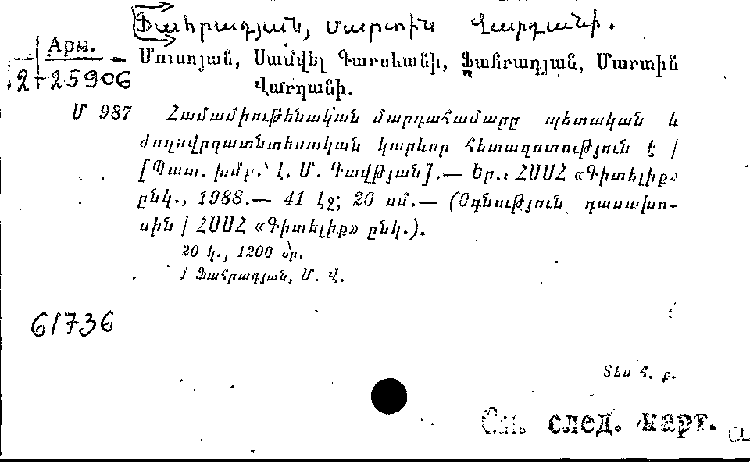 Ֆահրադյան, Մարտին Վարդանի.
Арм.
2-25906
Մուսոյան, Սամվել Գարսևանի, Ֆահրադյան, Մարտին
Վարդանի.
Մ 987 Համամիութենական մարդահամարը պետական և
ժողովրդատնտեսական կարևոր հետազոտություն է /
[Պատ. խմբ.՝ Լ. Մ. Դավթյան].— Եր.: ՀՍՍՀ «Գիտելիք»
ընկ., 1988.— 41 էջ; 20 սմ.— (Օգնություն դասախո-
սին / ՀՍՍՀ «Գիտելիք» ընկ.).
20 կ., 1200 օր.
/ Ֆահրադյան, Մ. Վ.
61736
Տես հ. ք.
См. след. карт.